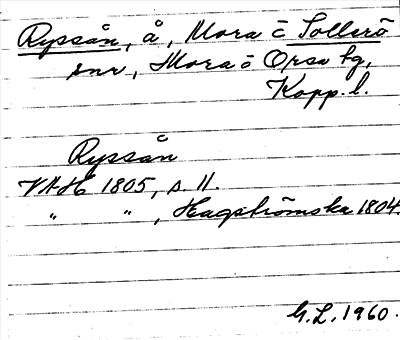 Ryssån, å, Mora o Sollerö
snr, Mora o Orsa tg,
Kopp. l.
Ryssån
VAH 1805, s. 11.
" " , Hagströmska 1804.
G.L. 1960.